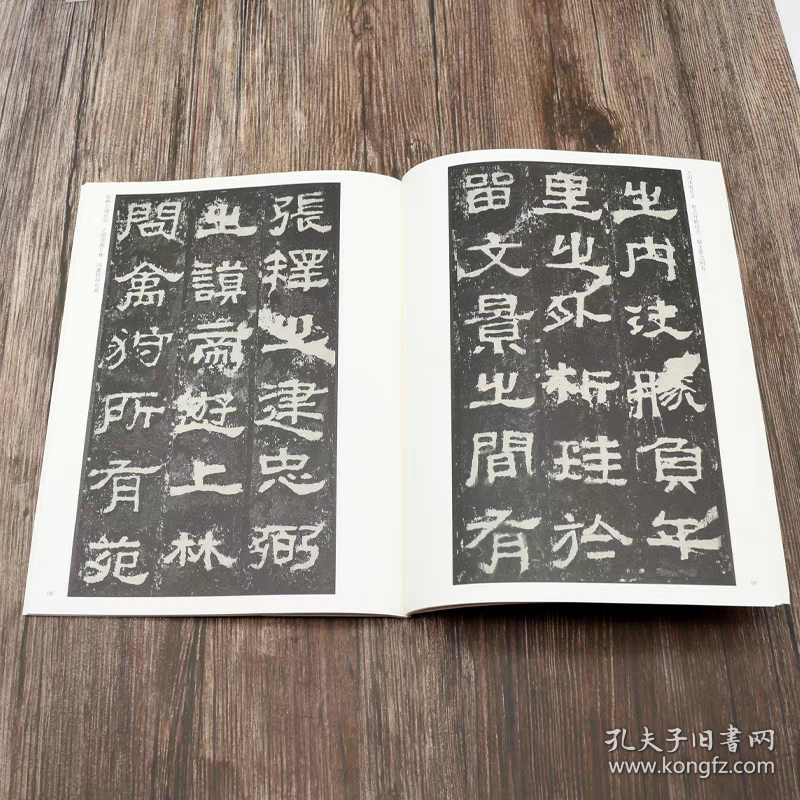 之內決勝負千
里之外析珪於
留文景之間有
張釋之建忠弼
之謨帝遊上林
問禽狩所有苑
孔夫子旧书网
www.kongfz.com